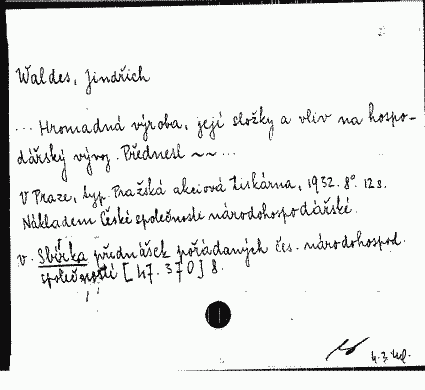 Waldes, Jindřich
... Hromadná výroba, její složky a vliv na hospo-
dářský vývoj. Přednesl ~~ ...
V Praze, typ. Pražská akciová tiskárna, 1932. 8°. 12 s.
Nákladem České společnosti národohospodářské.
v. Sbírka přednášek pořádaných čes. národohospod.
společností [47. 370] 8.